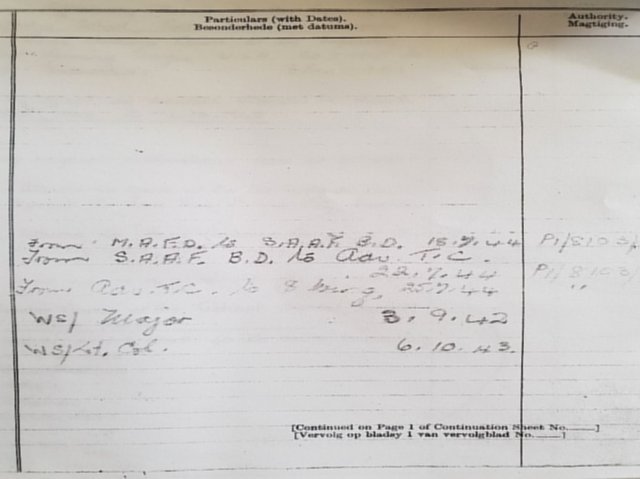 Particulars (with Dates). Authority.
Besonderhede (met datums). Magtiging.
From M.A.F.D. to S.A.A.F. B.D. 18.7.44 P1/8103/
From S.A.A.F. B.D. to Adv. T.C.
22.7.44 P1/8103/
From Adv. T.C. to 8 25.7.44 "
WS/ Major 3.9.42
WS/Lt. Col. 6.10.43.
[Continued on Page 1 of Continuation Sheet No.____]
[Vervolg op bladsy 1 van vervolgblad No.____]